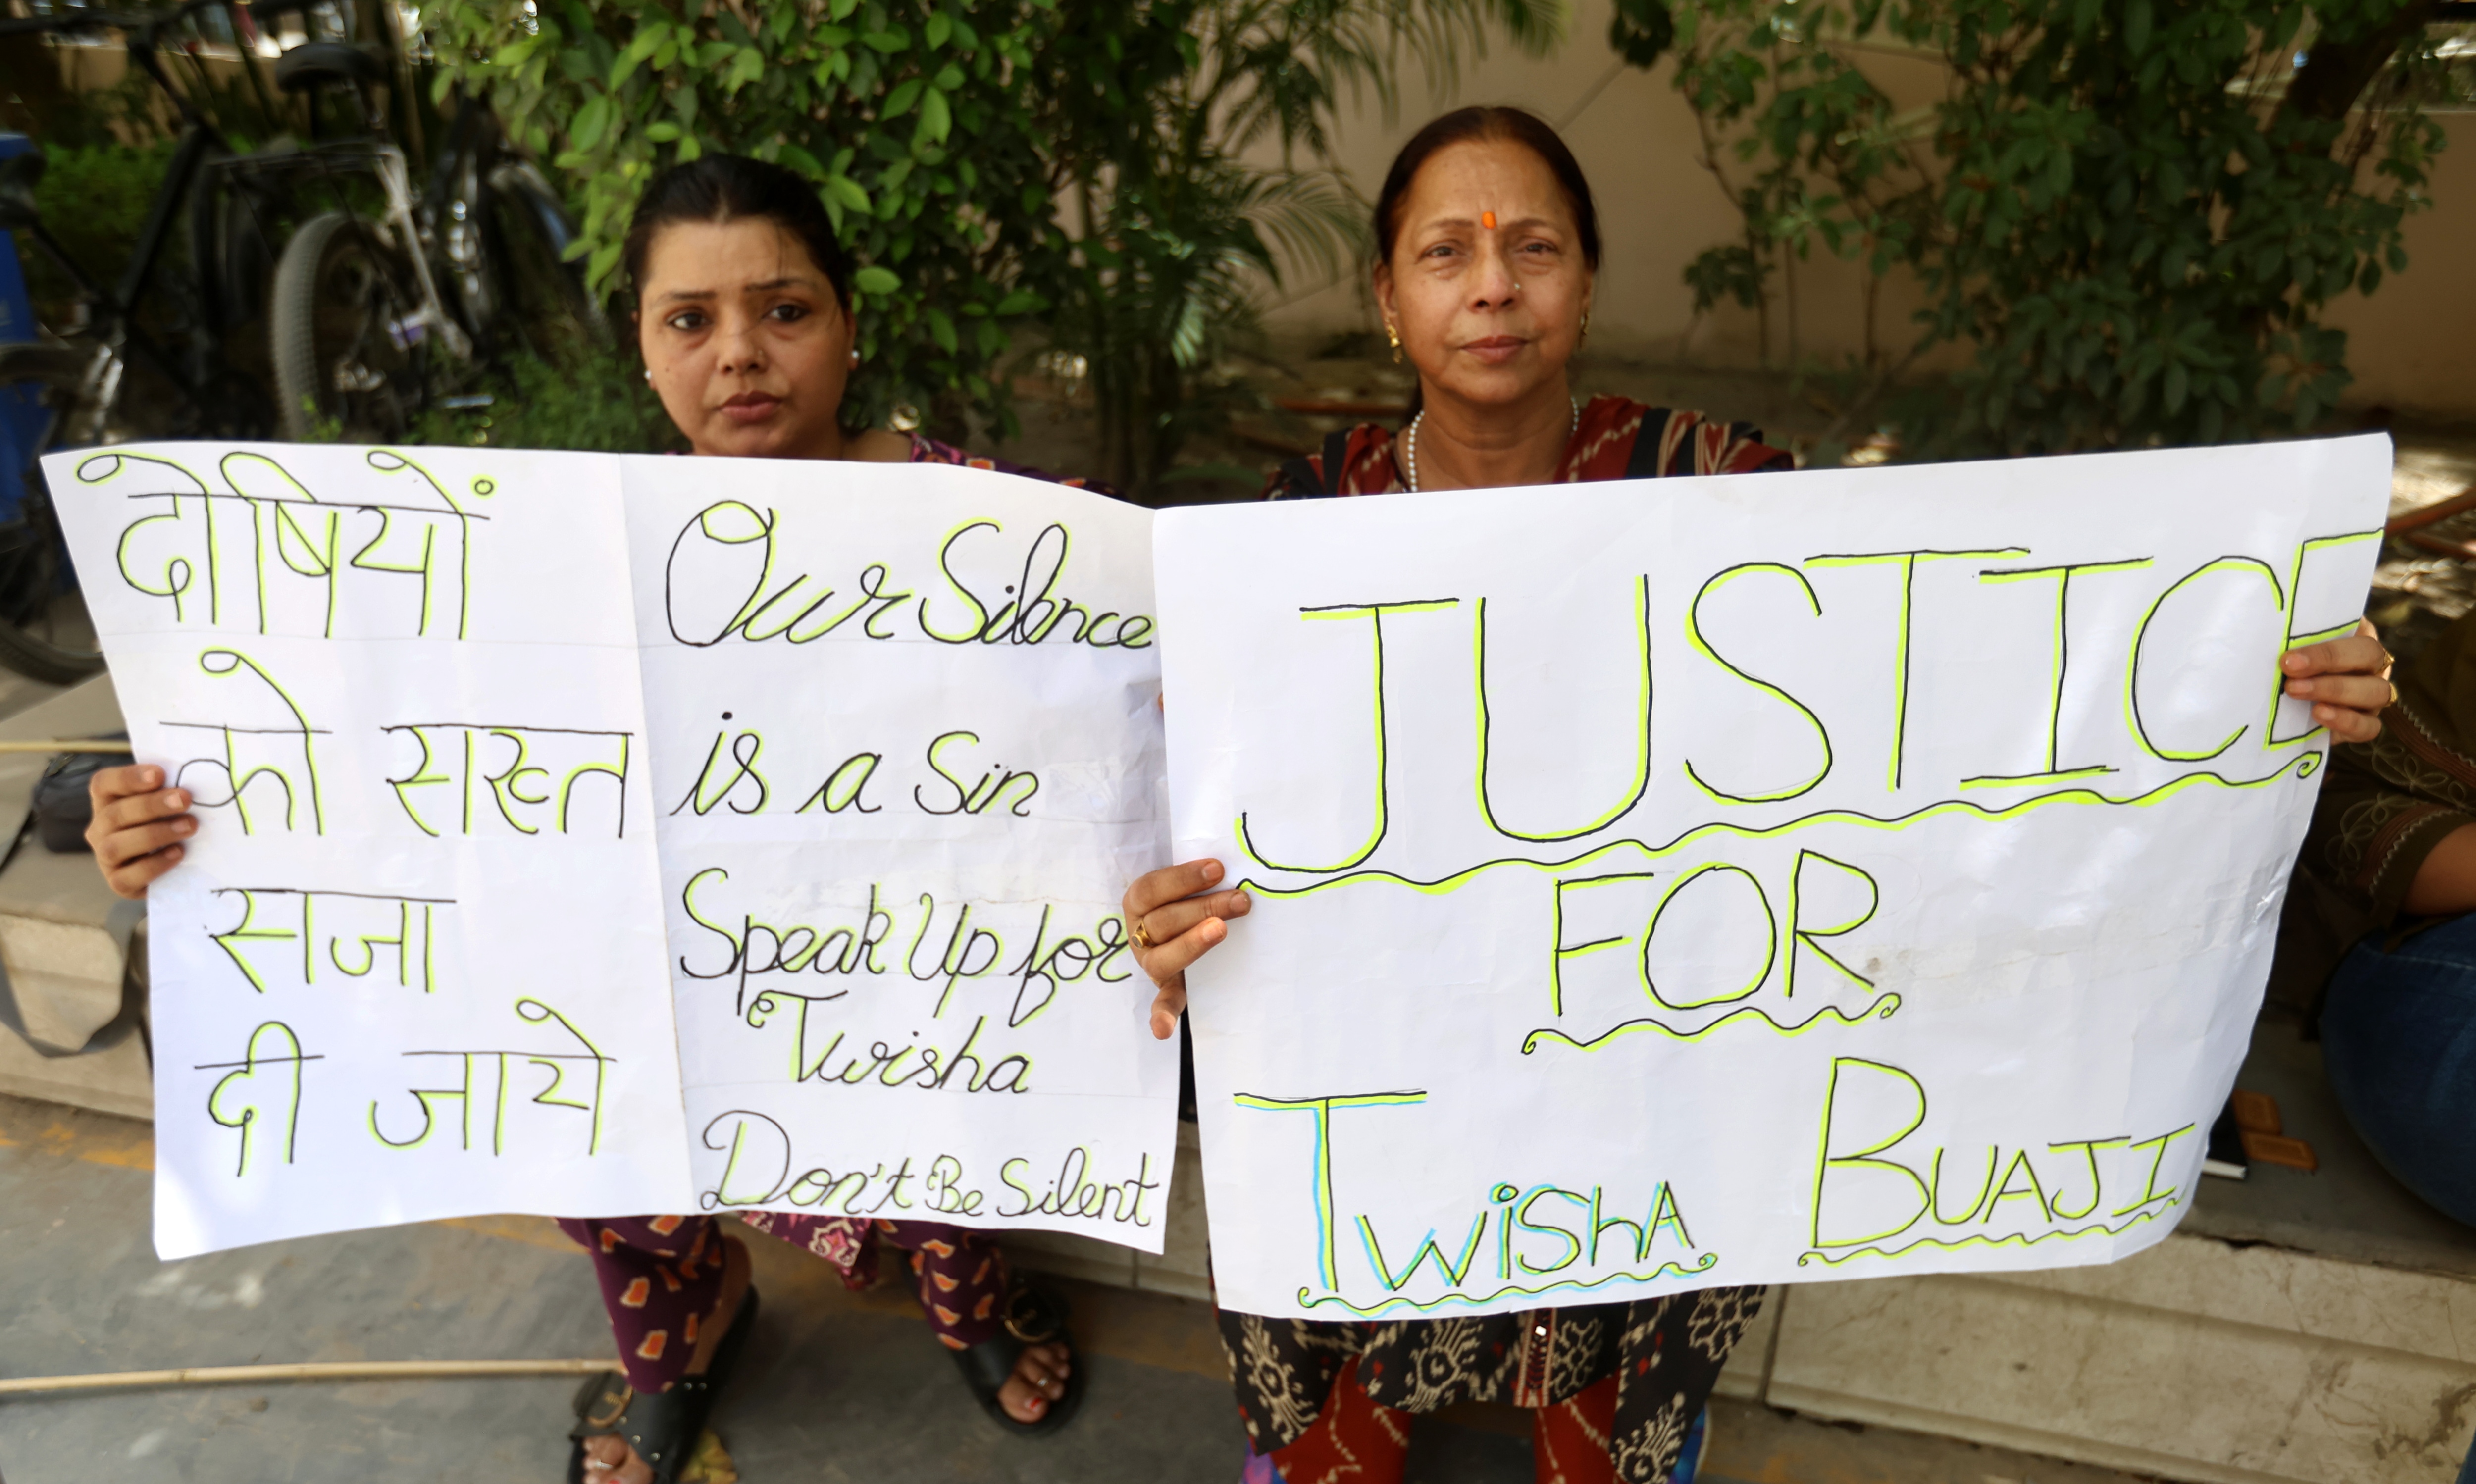 दोषियों
को सख्त
सजा
दी जाये
Our Silence
is a Sin
Speak Up for
Twisha
Don't Be Silent
JUSTICE
FOR
TWiShA BUAJI